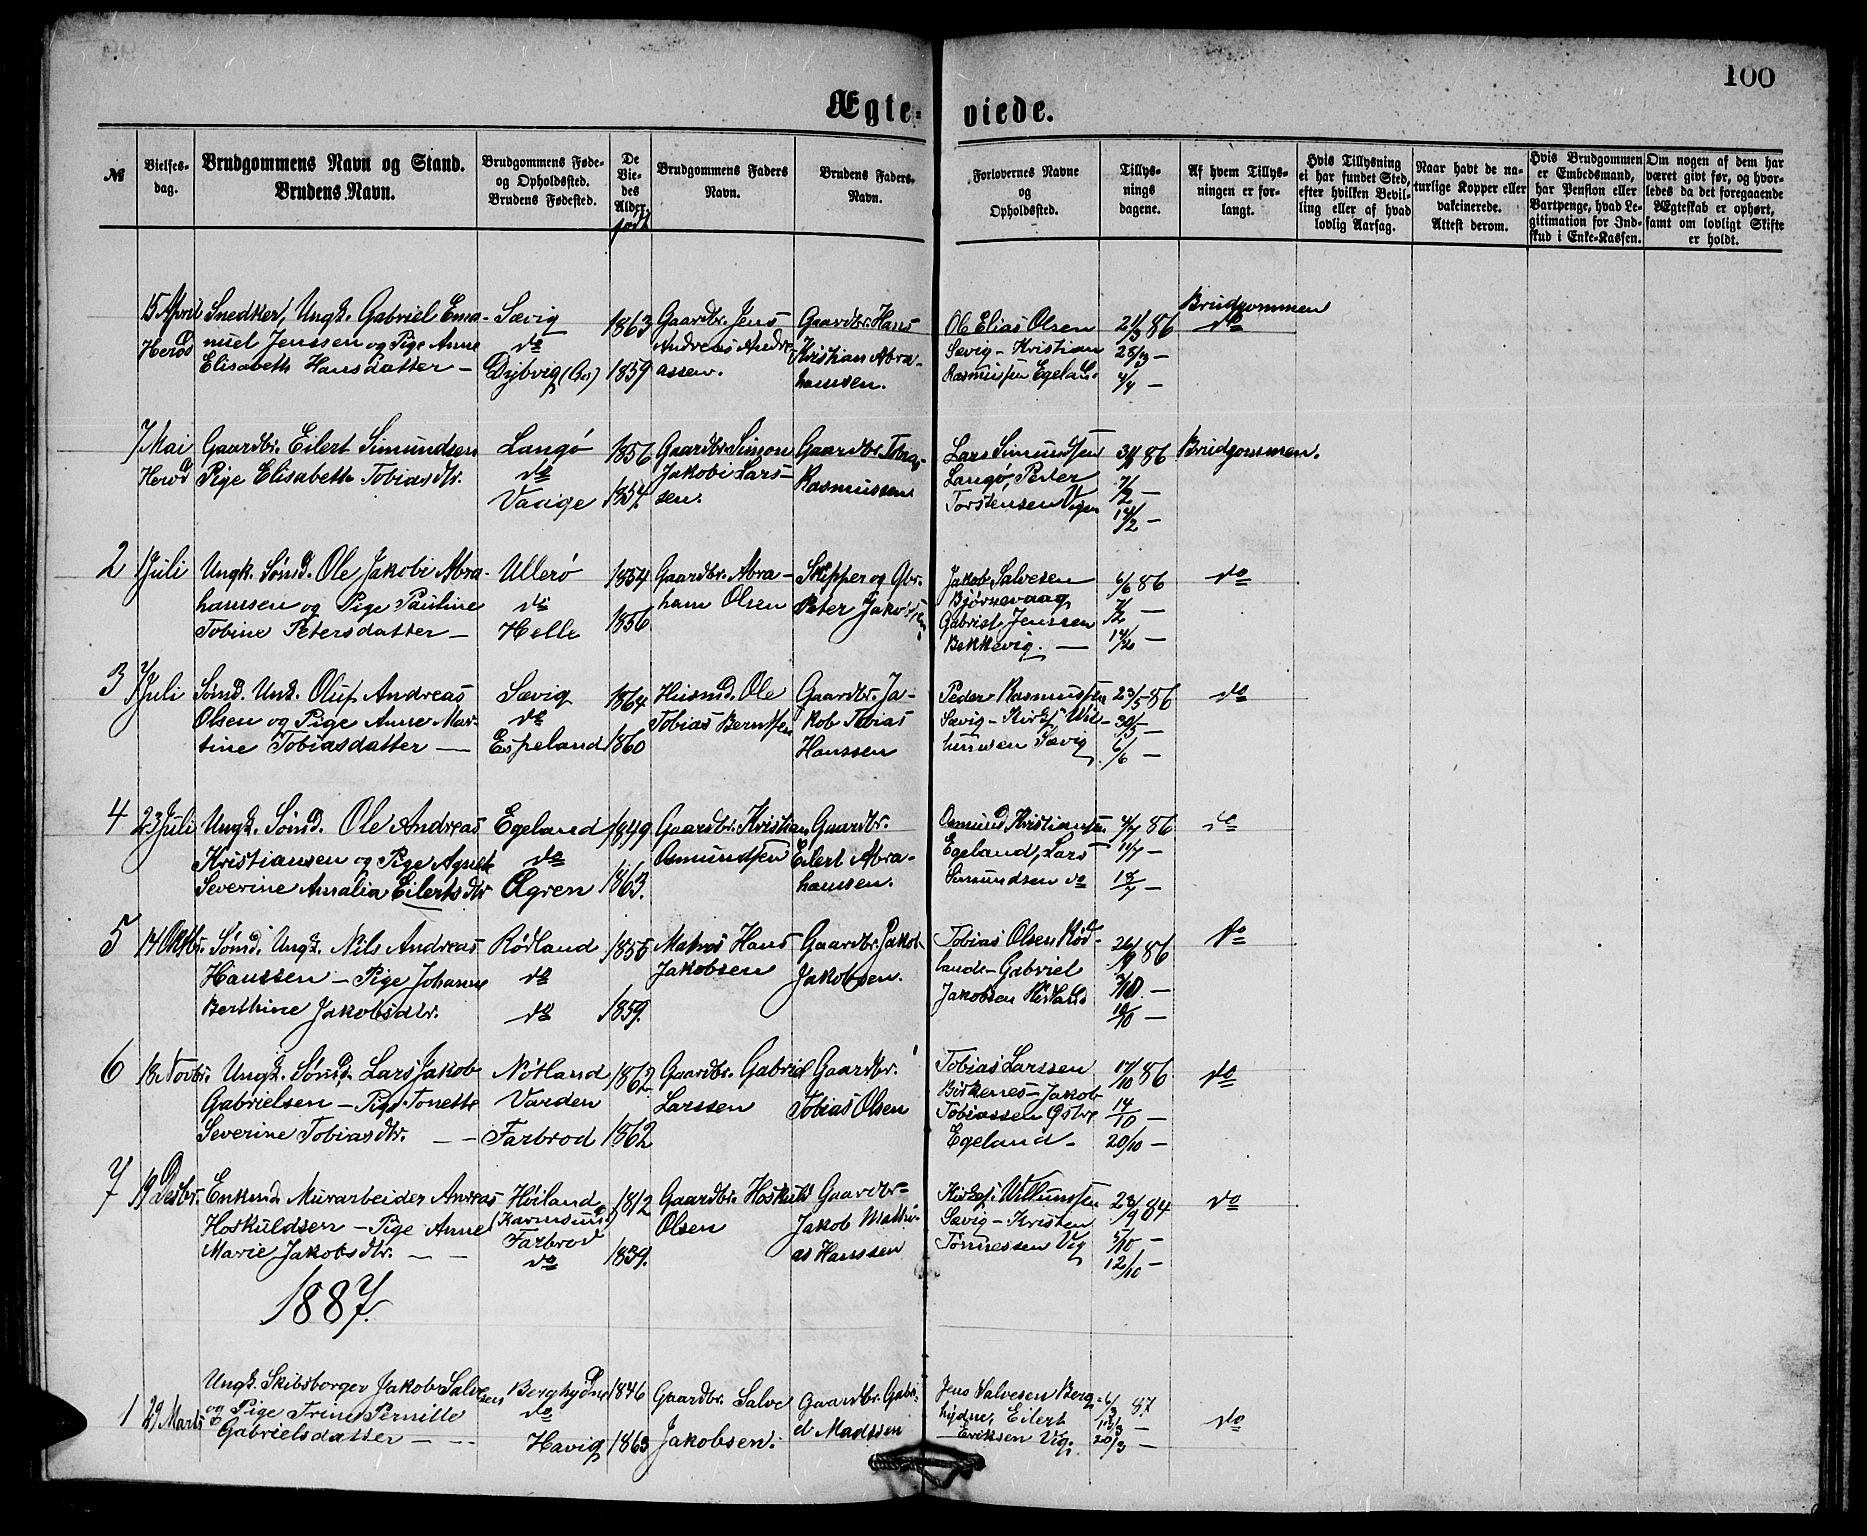 100
Ægte-viede.
№
Vielses-dag.
Brudgommens Navn og Stand.
Brudens Navn.
Brudgommens Føde-
og Opholdssted.
Brudens Fødested.
De
Vie-
des
Alder.
født
Brudgommens Faders
Navn.
Brudens Faders
Navn.
Forlovernes Navne
og
Opholdssted.
Tillys-
nings
dagene.
Af hvem Tillys-
ningen er for-
langt.
Hvis Tillysning
ei har fundet Sted,
efter hvilken Bevil-
ling eller af hvad
lovlig Aarsag.
Naar havt de na-
turlige Kopper eller
vakcinerede.
Attest derom.
Hvis Brudgommen
er Embedsmand,
har Pension eller
Vartpenge, hvad Le-
gitimation for Ind-
skud i Enke-Kassen.
Om nogen af dem har
været givt før, og hvor-
ledes da det foregaaende
Ægteskab er ophørt,
samt om lovligt Skifte
er holdt.
15 April
Herød
Snedker, Ungk. Gabriel Ema-
nuel Jenssen og Pige Anne
Elisabeth Hansdatter —
Sævig
do
Dybvig
1863
1859
Gaardbr. Jens
Andreas Andre-
assen.
Gaardbr. Hans
Kristian Abra-
hamsen.
Ole Elias Olsen
Sævig - Kristian
Rasmussen Egeland
21/3 86
28/3 —
4/4 —
Brudgommen
do
7 Mai
Herød
Gaardbr. Eilert Simundsen
Pige Elisabeth Tobiasdtr.
Langø
do
Vaage
1856
1834
Gaardbr. Simon
Jakobi Lars-
sen.
Gaardbr. Tobias
Rasmussen
Lars Simundsen
Langø, Peder
Torstensen Vigen
31/1 86
7/2 —
14/2 —
Brudgommen.
2
1 Juli
Ungk. Sømd. Ole Jakobi Abra-
hamsen og Pige Pauline
Tobine Petersdatter —
Ullerø
do
Helle
1854
1856
Gaardbr. Abra-
ham Olsen
Skipper og Gbr.
Peter Jakobsen
Jakob Salvesen
Bjørnevaag
Gabriel Jenssen
Bekkevig. —
6/6 86
do
3
7 Juli
Sømd. Ungk. Oluf Andreas
Olsen og Pige Anne Mar-
tine Tobiasdatter —
Sævig
do
Espeland
1864
1860
Husmd. Ole
Tobias Berntsen
Gaardbr. Ja-
kob Tobias
Hanssen
Peder Rasmussen
Sævig - Kirkes. Wil-
lumsen Sævig
23/5 86
30/5 —
6/6 —
do
4
23 Juli
Ungk. Sømd. Ole Andreas
Kristiansen og Pige Agnete
Severine Amalia Eilertsdtr
Egeland
do
Øgren
1849
1863.
Gaardbr. Kristian
Osmundsen
Gaardbr.
Eilert Abra-
hamsen.
Osmund Kristiansen
Egeland, Lars
Simundsen do
4/7 86
11/7 —
18/7 —
do
5
14 Oktbr.
Sømd. Ungk. Nils Andreas
Hanssen — Pige Johanne
Berthine Jakobsdtr.
Rødland
do
do
1855
1859.
Matros Hans
Jakobsen
Gaardbr. Jakob
Jakobsen.
Tobias Olsen Rød-
land - Gabriel
Jakobsen Rødland
26/9 86
3/10 —
10/10 —
do
6
18 Novbr.
Ungk. Sømd. Lars Jakob
Gabrielsen — Pige Tonette
Severine Tobiasdtr. — —
Nøtland
Varden
Farbrod
1862
1862
Gaardbr. Gabriel
Larssen
Gaardbr.
Tobias Olsen
Tobias Larssen
Birkenes - Jakob
Tobiassen Østre
Egeland -
17/10 86
14/10 —
20/10 —
do
7
19 Desbr.
Enkmd. Murarbeider Andreas
Hoskuldsen — Pige Anne
Marie Jakobsdtr. — —
Høiland
(Karmsund)
Farbrod
do
1812
1839.
Gaardbr. Hoskuld
Olsen
Gaardbr-
Jakob Mathi-
as Hanssen
Kirkes. Willumsen
Sævig - Kristen
Tønnessen Vig
28/9 84
5/10 —
12/10 —
do
1887.
1
29 Marts
Ungk. Skibsborger Jakob Salvesen
og Pige Trine Pernille
Gabrielsdatter — —
Berghydne
do
Havig
1846
1863
Gaardbr. Salve
Jakobsen.
Gaardbr. Gabri-
el Madssen
Jens Salvesen Berg-
hydne, Eilert
Eriksen Vig.
6/3 87
13/3 —
20/3 —
do